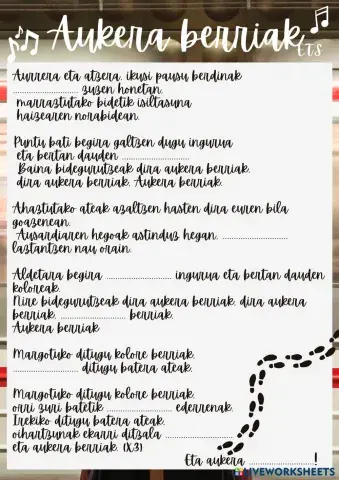 Aukera berriak
ETS
Aurrera eta atzera, ikusi pausu berdinak
........................ zuzen honetan,
marraztutako bidetik isiltasuna
haizearen norabidean.
Puntu bati begira galtzen dugu ingurua
eta bertan dauden ........................
Baina bidegurutzeak dira aukera berriak,
dira aukera berriak. Aukera berriak.
Ahaztutako ateak azaltzen hasten dira euren bila
goazenean.
Ausardiaren hegoak astinduz hegan, ........................
laztantzen nau orain.
Aldetara begira ........................ ingurua eta bertan dauden
koloreak.
Nire bidegurutzeak dira aukera berriak, dira aukera
berriak, ........................ berriak.
Aukera berriak
Margotuko ditugu kolore berriak,
........................ ditugu batera ateak.
Margotuko ditugu kolore berriak,
orri zuri batetik ........................ ederrenak.
Irekiko ditugu batera ateak,
oihartzunak ekarri ditzala ........................
eta aukera berriak. (X3)
Eta aukera ........................!
LIVEWORKSHEETS